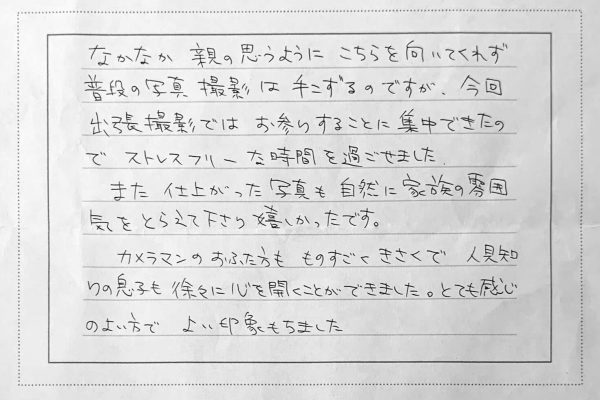 なかなか 親の思うように こちらを向いてくれず
普段の写真 撮影 は 手こずるのですが、今回
出張撮影では お参りすることに集中できたの
で ストレスフリーな時間を過ごせました.
また 仕上がった写真も 自然に家族の雰囲
気を とらえて下さり 嬉しかったです。
カメラマンの おふた方も ものすごく きさくで 人見知
りの息子も 徐々に心を開くことができました。とても感じ
のよい方で よい印象もちました